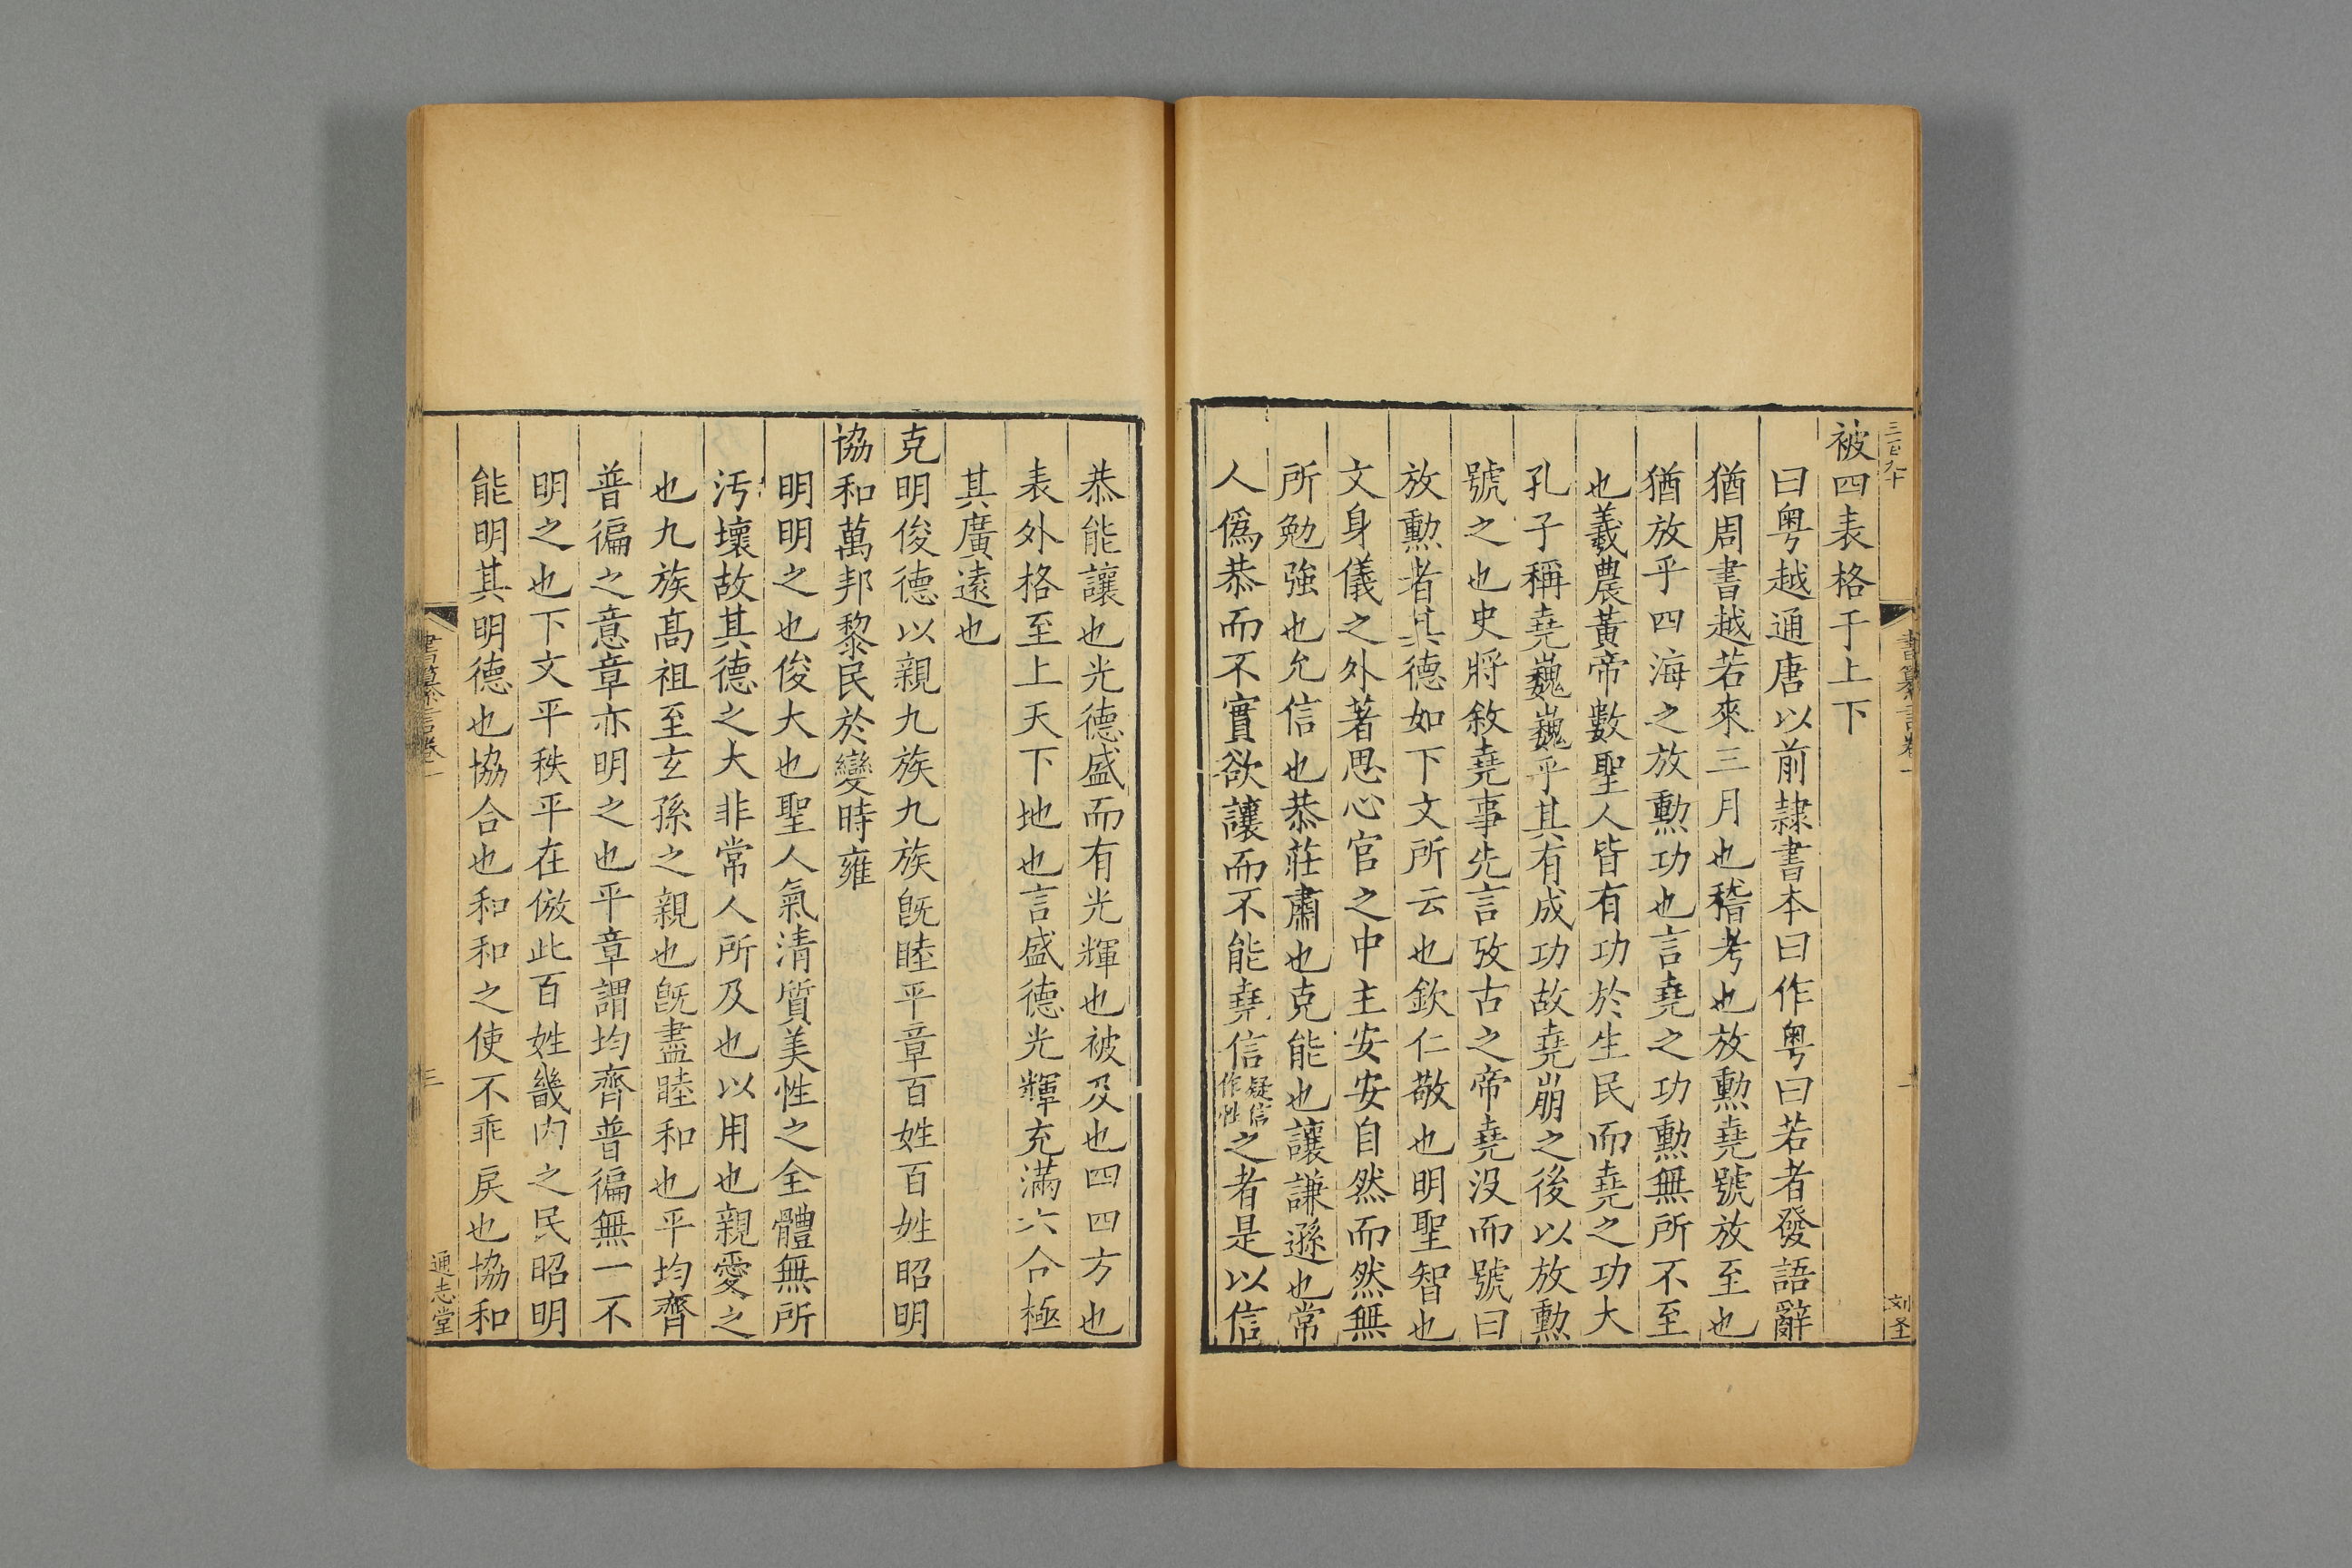 三百九十
書纂言卷一
刘圣
被四表格于上下
曰粤越通唐以前隷書本曰作粤曰若者發語辭
猶周書越若來三月也稽考也放勲堯號放至也
猶放乎四海之放勲功也言堯之功勲無所不至
也羲農黃帝數聖人皆有功於生民而堯之功大
孔子稱堯巍巍乎其有成功故堯崩之後以放勲
號之也史將敘堯事先言攷古之帝堯没而號曰
放勲者其德如下文所云也欽仁敬也明聖智也
文身儀之外著思心官之中主安安自然而然無
所勉強也允信也恭莊肅也克能也讓謙遜也常
人僞恭而不實欲讓而不能堯信疑信作性之者是以信
恭能讓也光德盛而有光輝也被及也四四方也
表外格至上天下地也言盛德光輝充滿六合極
其廣遠也
克明俊德以親九族九族旣睦平章百姓百姓昭明
協和萬邦黎民於變時雍
明明之也俊大也聖人氣清質美性之全體無所
汚壞故其德之大非常人所及也以用也親愛之
也九族髙祖至玄孫之親也旣盡睦和也平均齊
普徧之意章亦明之也平章謂均齊普徧無一不
明之也下文平秩平在倣此百姓畿内之民昭明
能明其明德也協合也和和之使不乖戾也協和
書纂言卷一
三
通志堂